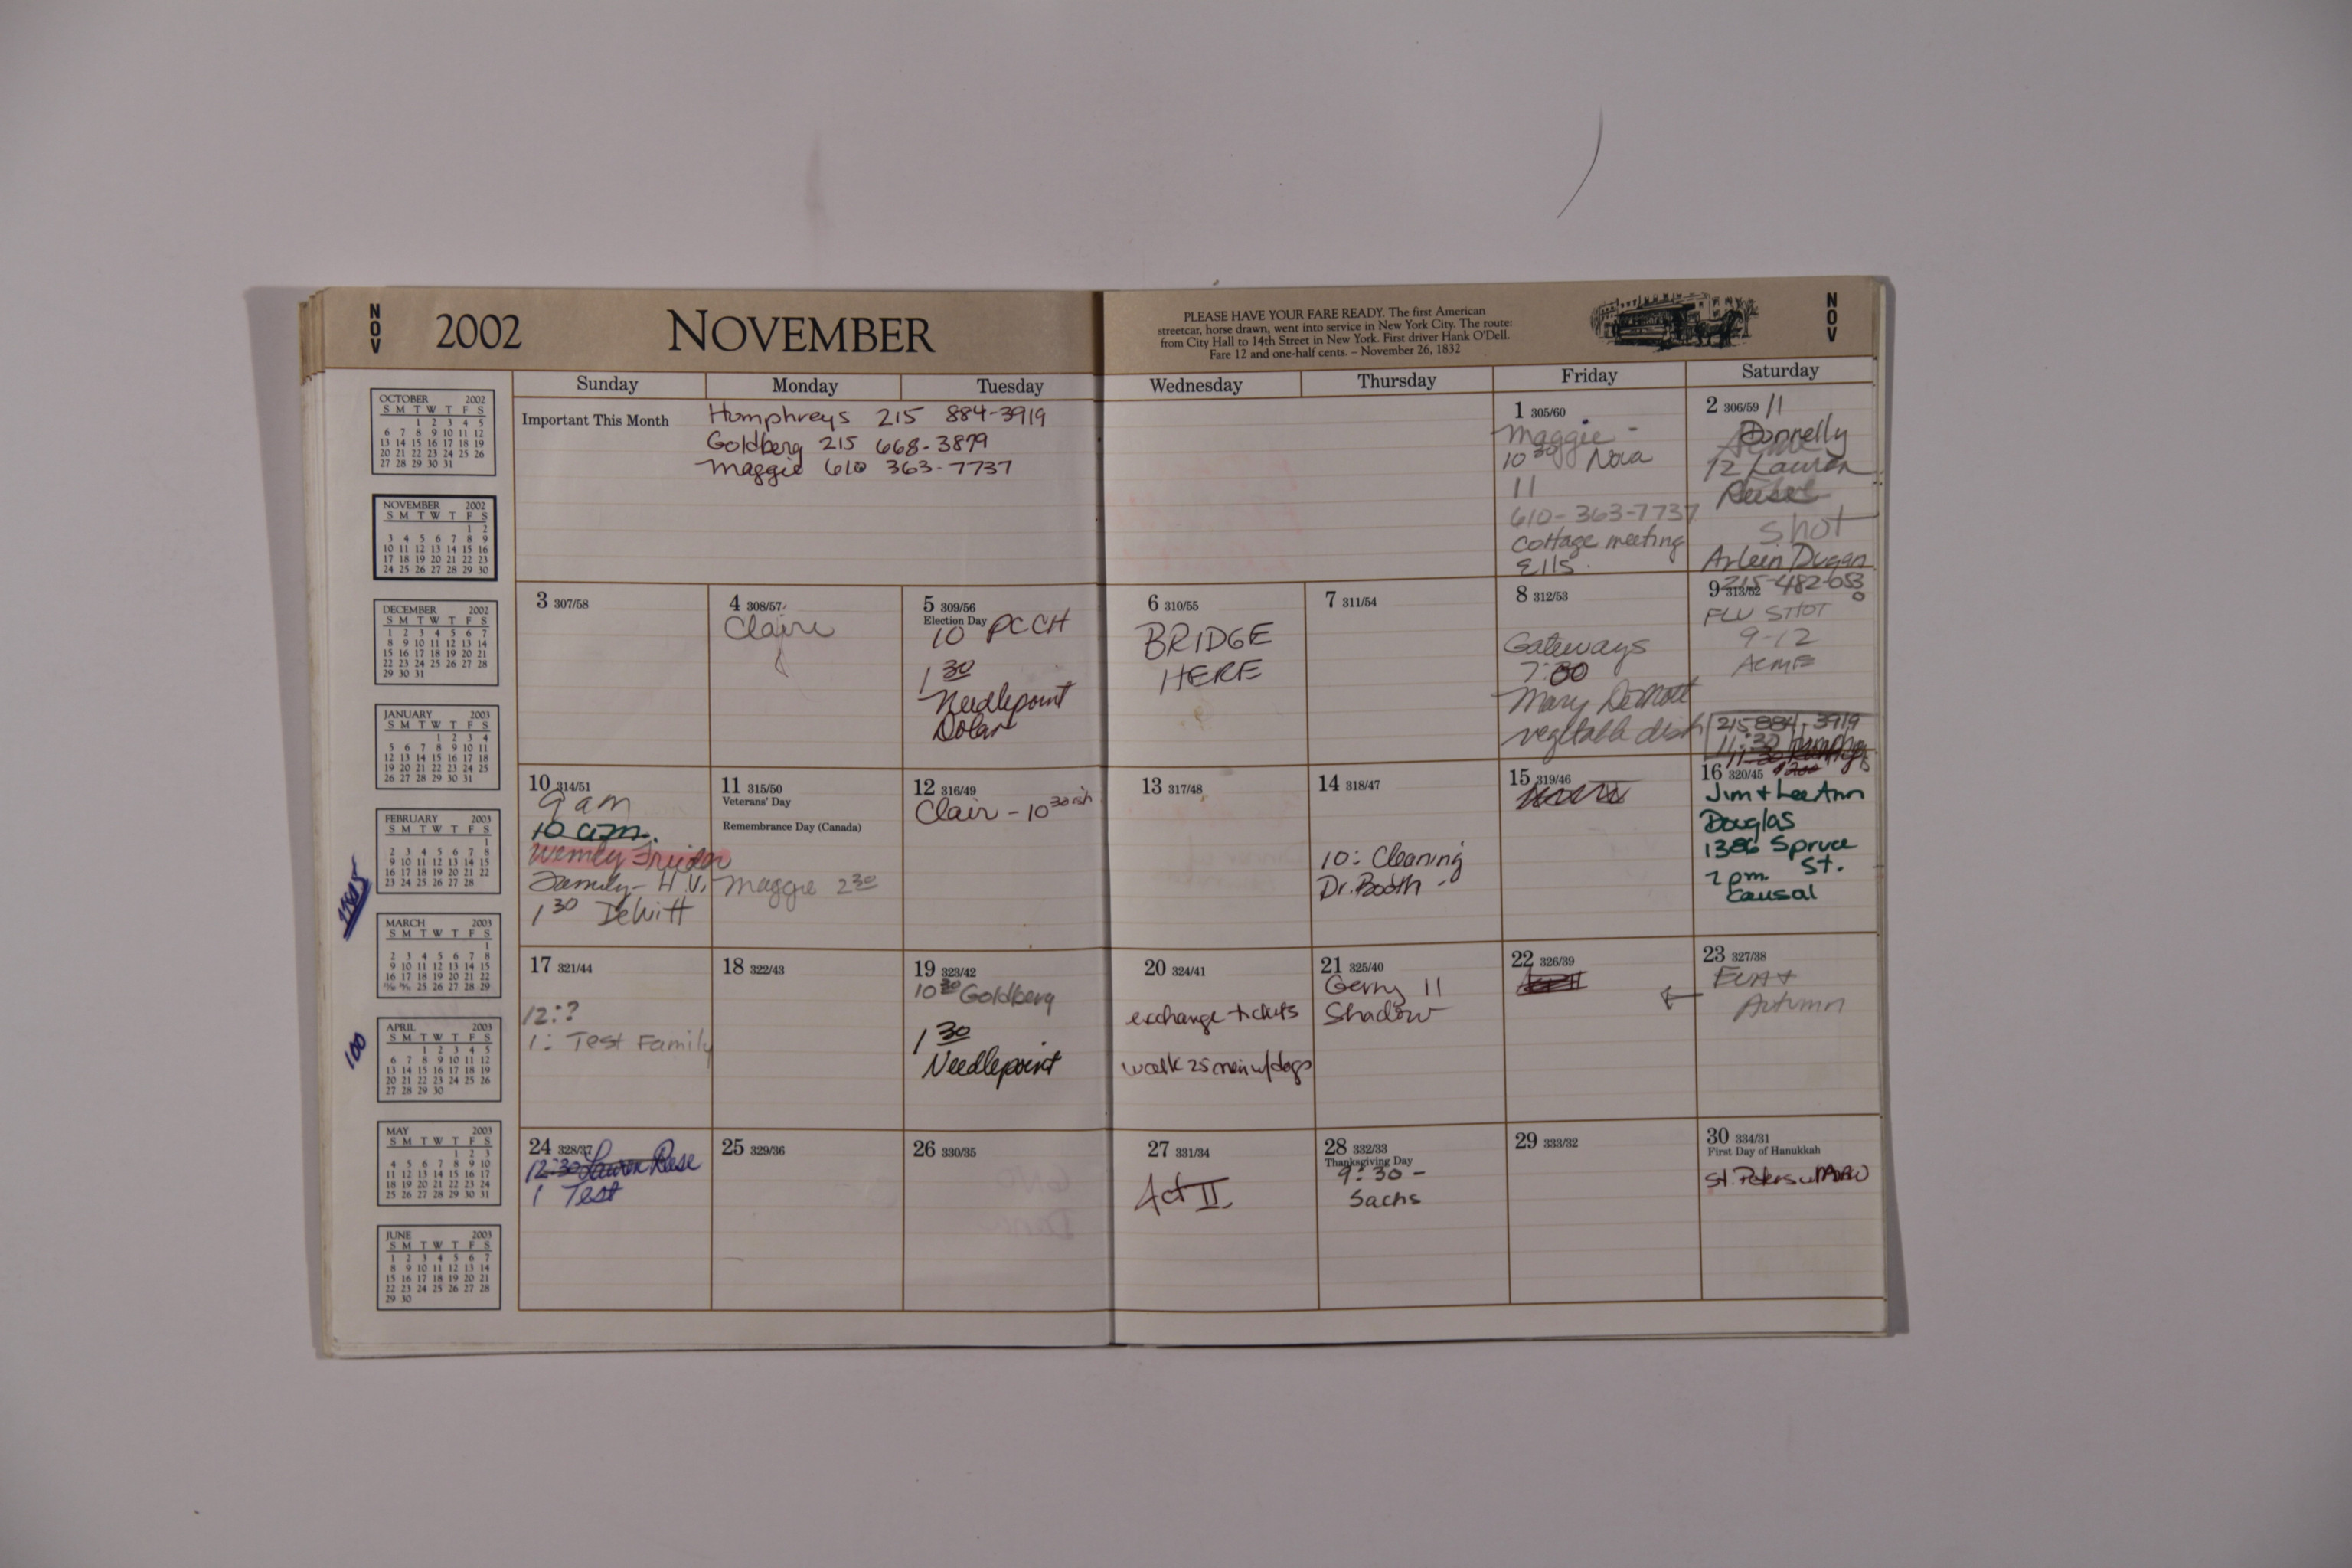 NOV
2002
NOVEMBER
PLEASE HAVE YOUR FARE READY. The first American
streetcar, horse drawn, went into service in New York City. The route:
from City Hall to 14th Street in New York. First driver Hank O'Dell.
Fare 12 and one-half cents. – November 26, 1832
NOV
Sunday Monday Tuesday Wednesday Thursday Friday Saturday
Important This Month
Humphreys 215 884-3919
Goldberg 215 668-3879
Maggie 610 363-7737
1 305/60
Maggie -
10 30 Nova
11
610-363-7737
Cottage meeting
Ells.
2 306/59 11
Donnelly
12 Lauren
Reese
Shot
Arleen Dugan
215-482-0530
3 307/58
4 308/57
Claire
5 309/56
Election Day
10 PCCH
1 30
Needlepoint
Dolan
6 310/55
BRIDGE
HERE
7 311/54
8 312/53
Gateways
7:00
Mary DeMott
vegetable dish
9 313/52
FLU SHOT
9-12
ACME
215 884-3919
11:30
10 314/51
9 am
10 am.
Family - H.V.
1 30 DeWitt
11 315/50
Veterans' Day
Remembrance Day (Canada)
Maggie 2 30
12 316/49
Clair - 10 30 ish
13 317/48
14 318/47
10: Cleaning
Dr. Booth -
15 319/46
16 320/45
Jim + LeeAnn
Douglas
1386 Spruce
St.
7 pm.
Causal
17 321/44
12:?
1: Test Family
18 322/43
19 323/42
10 30 Goldberg
1 30
Needlepoint
20 324/41
exchange tickets
walk 25 min w/dogs
21 325/40
Gerry 11
Shadow
22 326/39
23 327/38
Autumn
24 328/37
12:30 Lauren Reese
1 Test
25 329/36
26 330/35
27 331/34
Act II
28 332/33
Thanksgiving Day
9:30 -
Sachs
29 333/32
30 334/31
First Day of Hanukkah
St. Peters
OCTOBER 2002
S M T W T F S
1 2 3 4 5
6 7 8 9 10 11 12
13 14 15 16 17 18 19
20 21 22 23 24 25 26
27 28 29 30 31
NOVEMBER 2002
S M T W T F S
1 2
3 4 5 6 7 8 9
10 11 12 13 14 15 16
17 18 19 20 21 22 23
24 25 26 27 28 29 30
DECEMBER 2002
S M T W T F S
1 2 3 4 5 6 7
8 9 10 11 12 13 14
15 16 17 18 19 20 21
22 23 24 25 26 27 28
29 30 31
JANUARY 2003
S M T W T F S
1 2 3 4
5 6 7 8 9 10 11
12 13 14 15 16 17 18
19 20 21 22 23 24 25
26 27 28 29 30 31
FEBRUARY 2003
S M T W T F S
1
2 3 4 5 6 7 8
9 10 11 12 13 14 15
16 17 18 19 20 21 22
23 24 25 26 27 28
MARCH 2003
S M T W T F S
1
2 3 4 5 6 7 8
9 10 11 12 13 14 15
16 17 18 19 20 21 22
23/30 24/31 25 26 27 28 29
APRIL 2003
S M T W T F S
1 2 3 4 5
6 7 8 9 10 11 12
13 14 15 16 17 18 19
20 21 22 23 24 25 26
27 28 29 30
MAY 2003
S M T W T F S
1 2 3
4 5 6 7 8 9 10
11 12 13 14 15 16 17
18 19 20 21 22 23 24
25 26 27 28 29 30 31
JUNE 2003
S M T W T F S
1 2 3 4 5 6 7
8 9 10 11 12 13 14
15 16 17 18 19 20 21
22 23 24 25 26 27 28
29 30
100